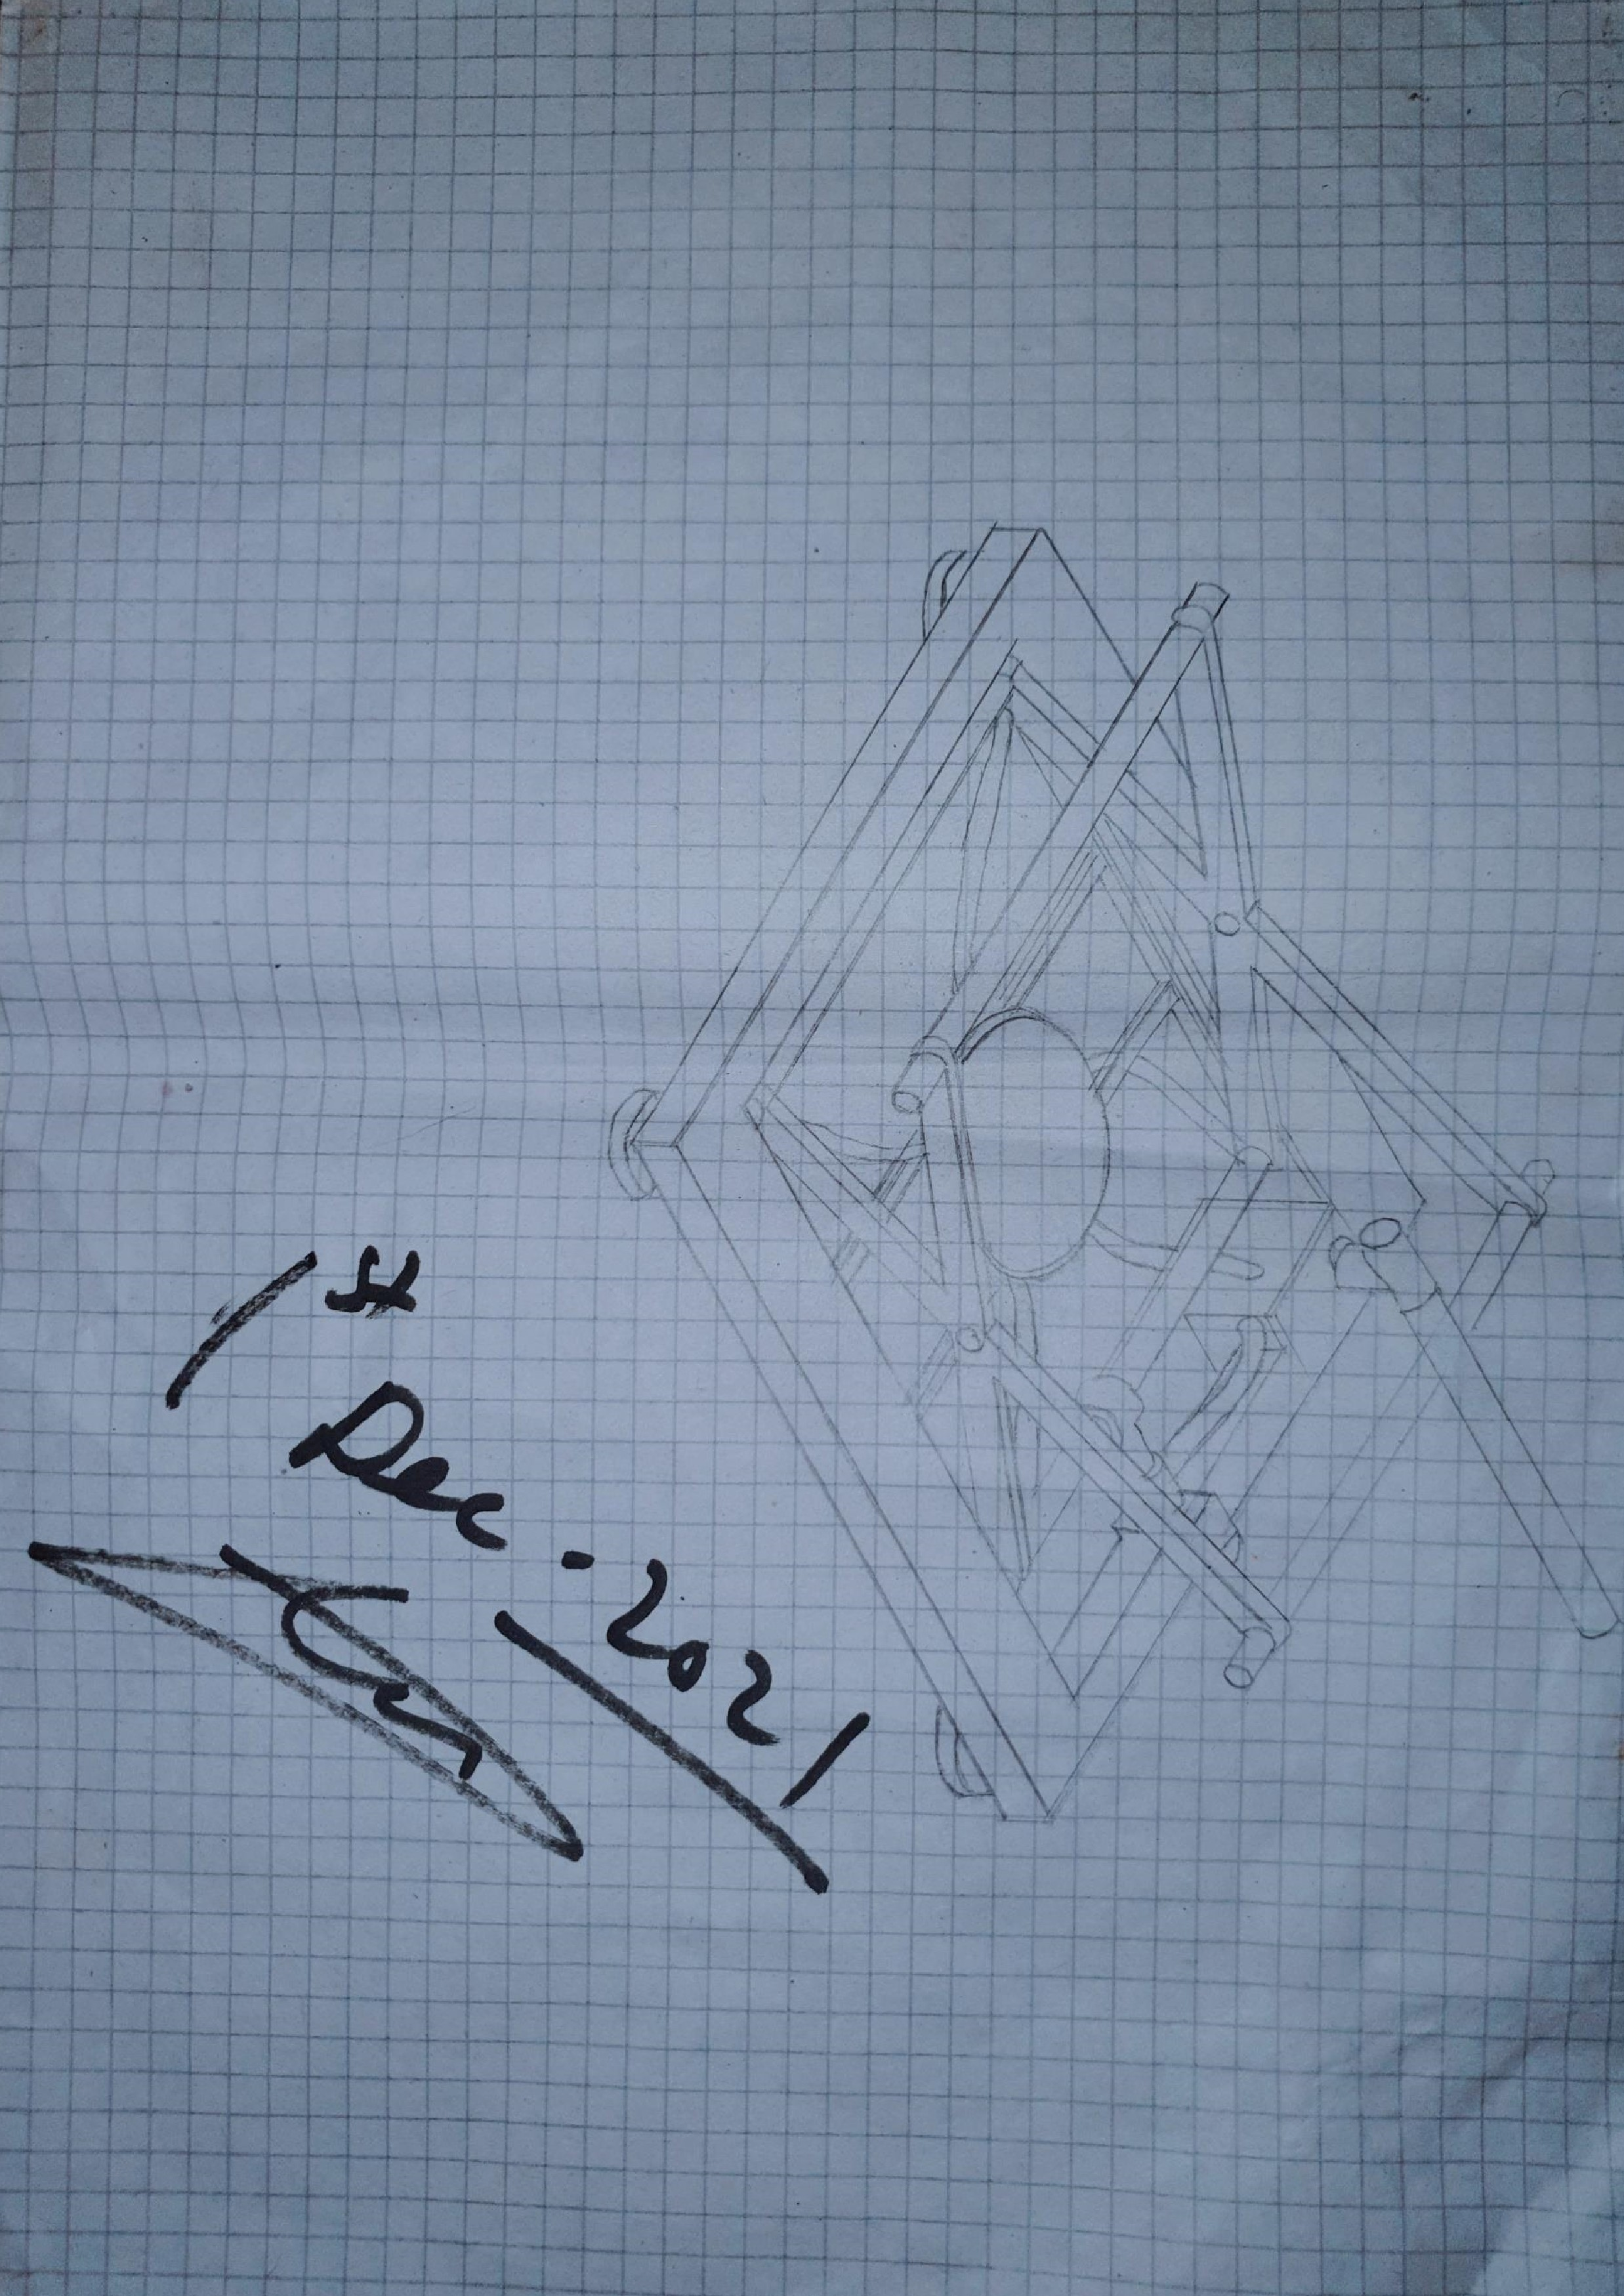 1st Dec - 2021